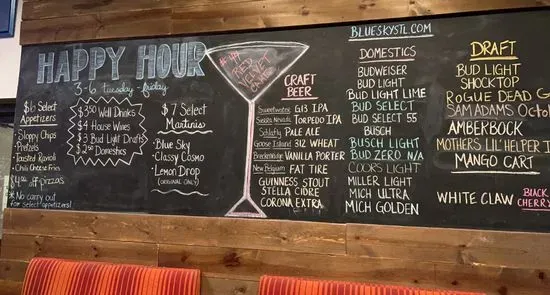 HAPPY HOUR
3-6 tuesday-friday
$6 Select
Appetizers
• Sloppy Chips
• Pretzels
• Toasted Ravioli
• Chili Cheese Fries
$4.00 off pizzas
* No carry out
for select appetizers!
$3.50 Well Drinks
$4 House Wines
$3 Bud Light Draft
$2.50 Domestics
$7 Select
Martinis
• Blue Sky
• Classy Cosmo
• Lemon Drop
(ORIGINAL ONLY)
RED
VELVET
CRAFT
BEER
Sweetwater G13 IPA
Sierra Nevada TORPEDO IPA
Schlafly PALE ALE
Goose Island 312 WHEAT
Breckenridge VANILLA PORTER
New Belgium FAT TIRE
GUINNESS STOUT
STELLA CIDRE
CORONA EXTRA
BLUESKYSTL.COM
DOMESTICS
BUDWEISER
BUD LIGHT
BUD LIGHT LIME
BUD SELECT
BUD SELECT 55
BUSCH
BUSCH LIGHT
BUD ZERO N/A
COORS LIGHT
MILLER LIGHT
MICH ULTRA
MICH GOLDEN
DRAFT
BUD LIGHT
SHOCKTOP
ROGUE DEAD G
SAM ADAMS Octo
AMBERBOCK
MOTHERS LIL' HELPER I
MANGO CART
WHITE CLAW
BLACK
CHERRY